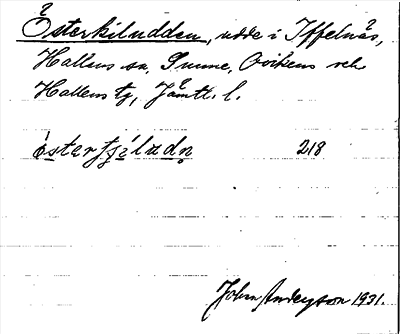 Österkiludden, udde i Iffelnäs,
Hallens sn, Sunne, Ovikens och
Hallens tg, Jämtl. l.
östertjílùdn̥ 218
John Anderson 1931.